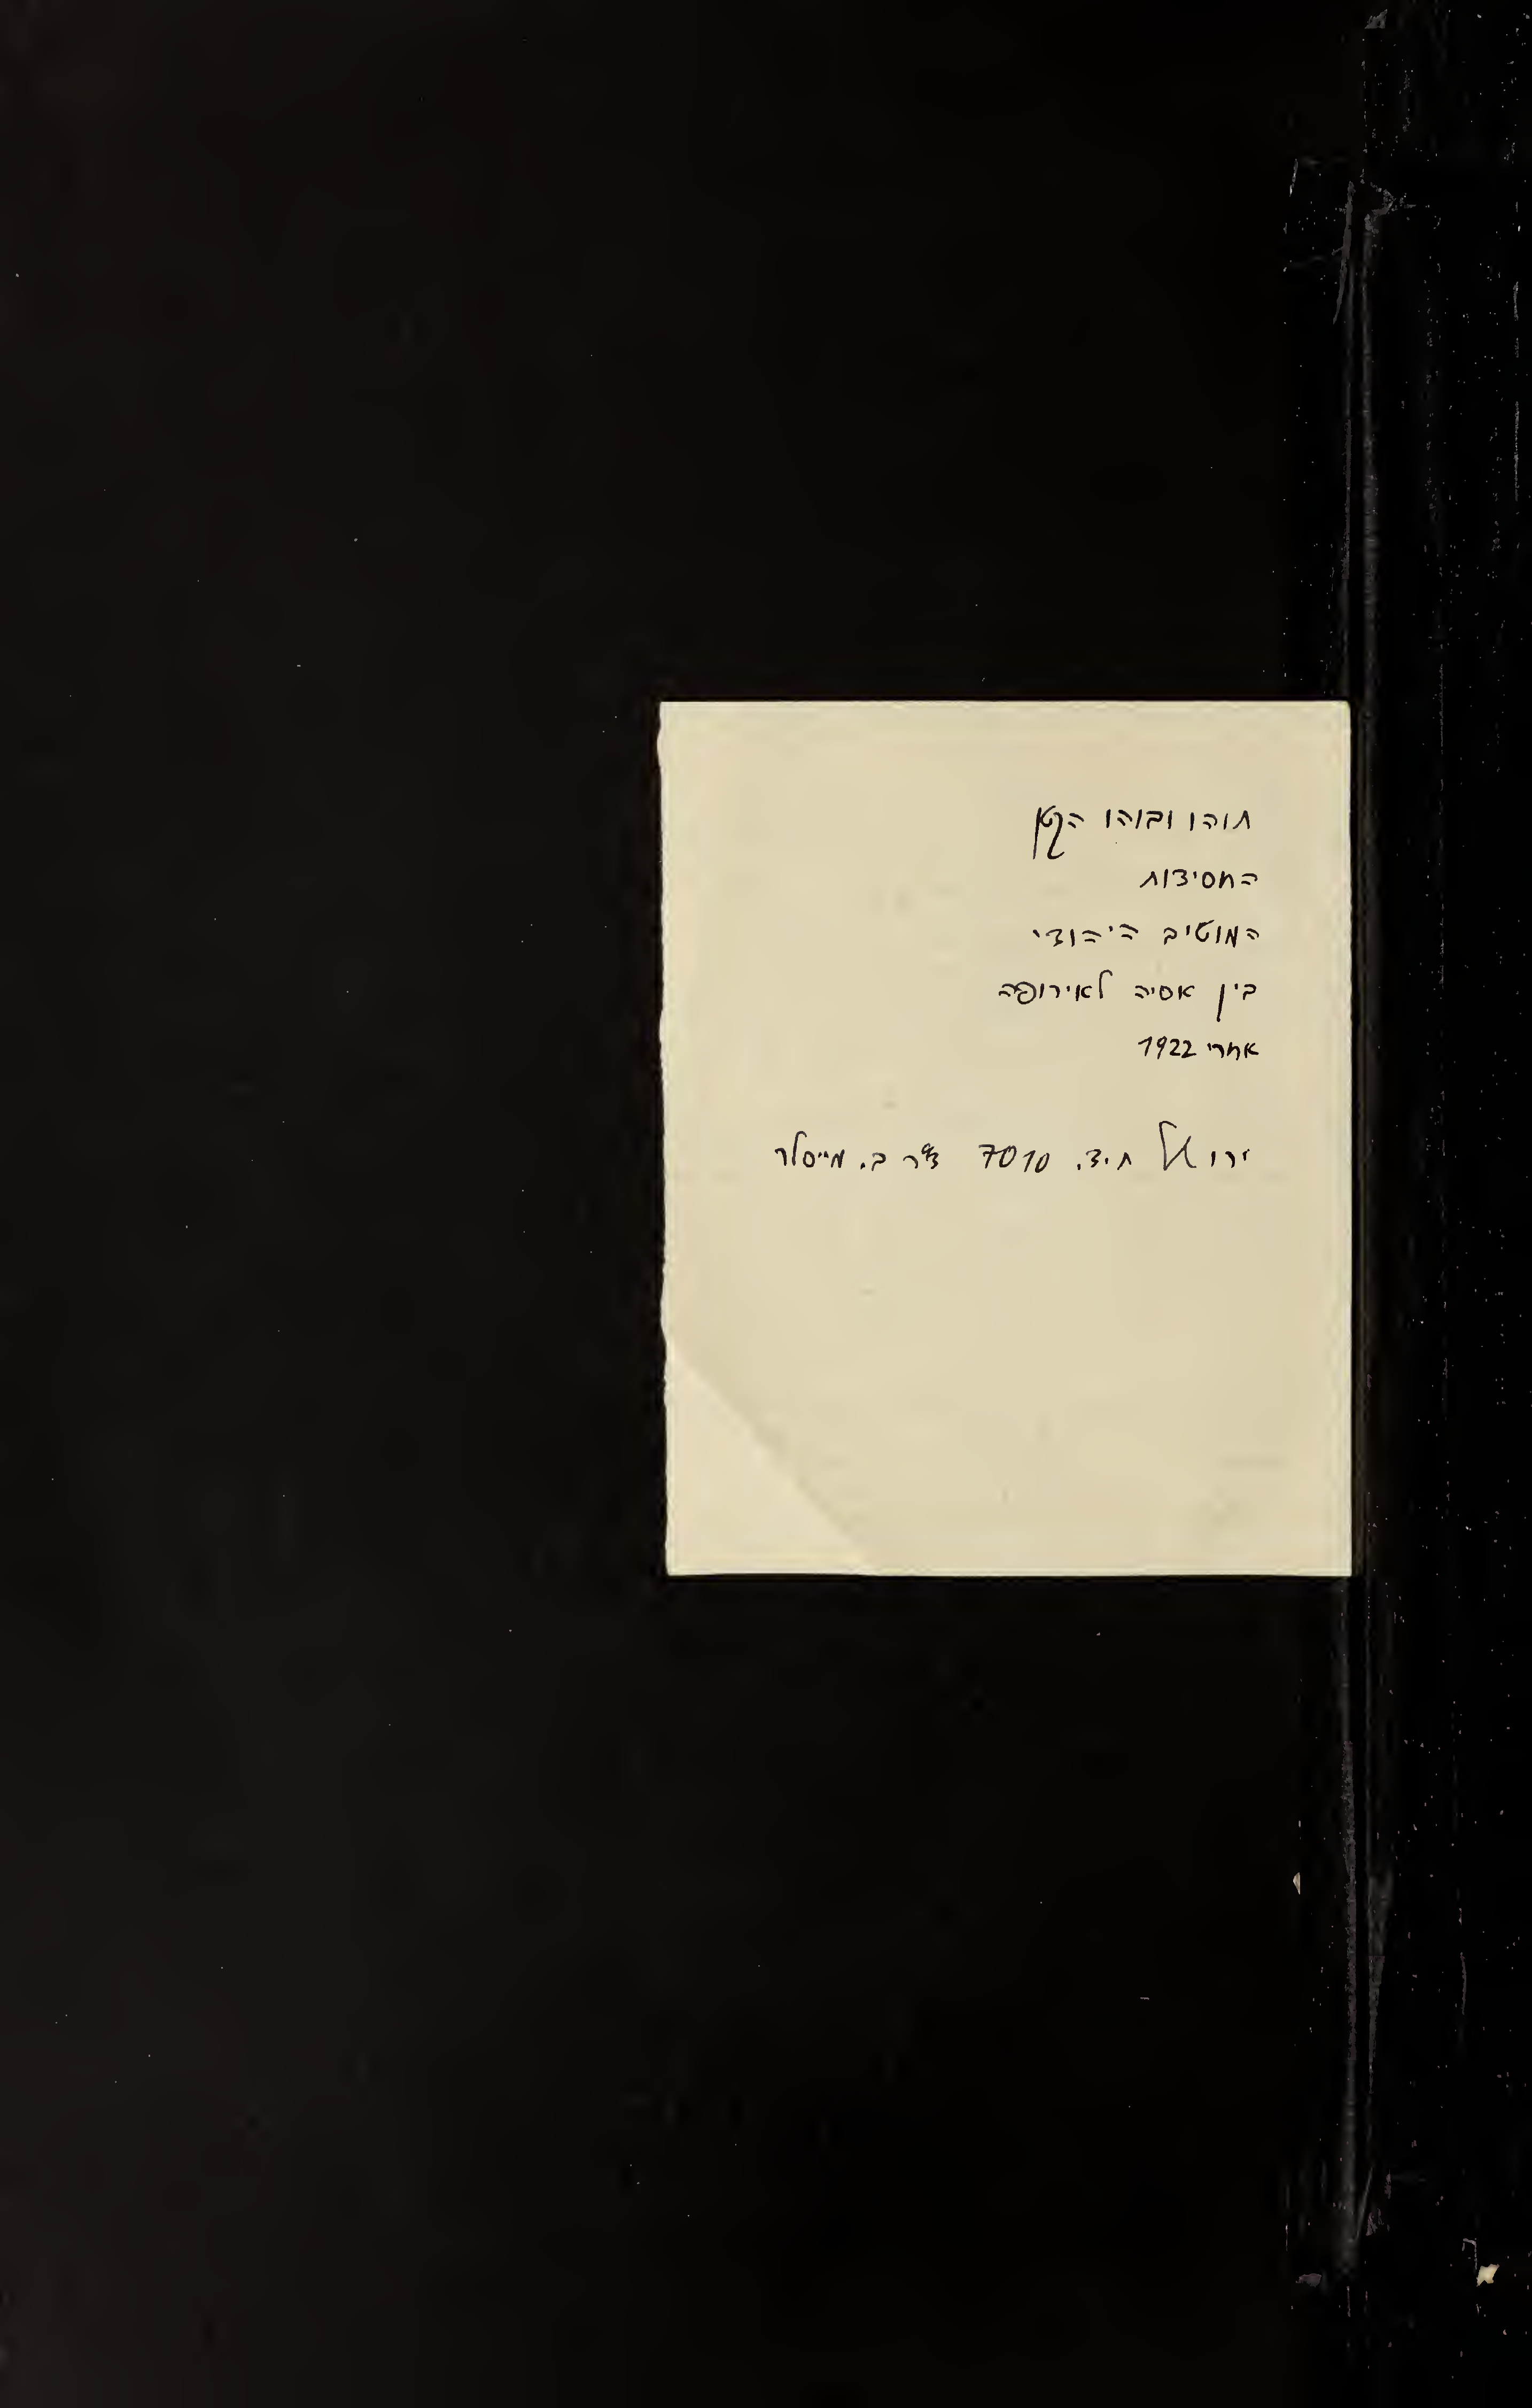 תוהו ובוהו הקטן
החסידות
המוטיב היהודי
בין אסיה לאירופה
אחרי 1922
ת.ד. 7010 ד"ר ב. מייסלר